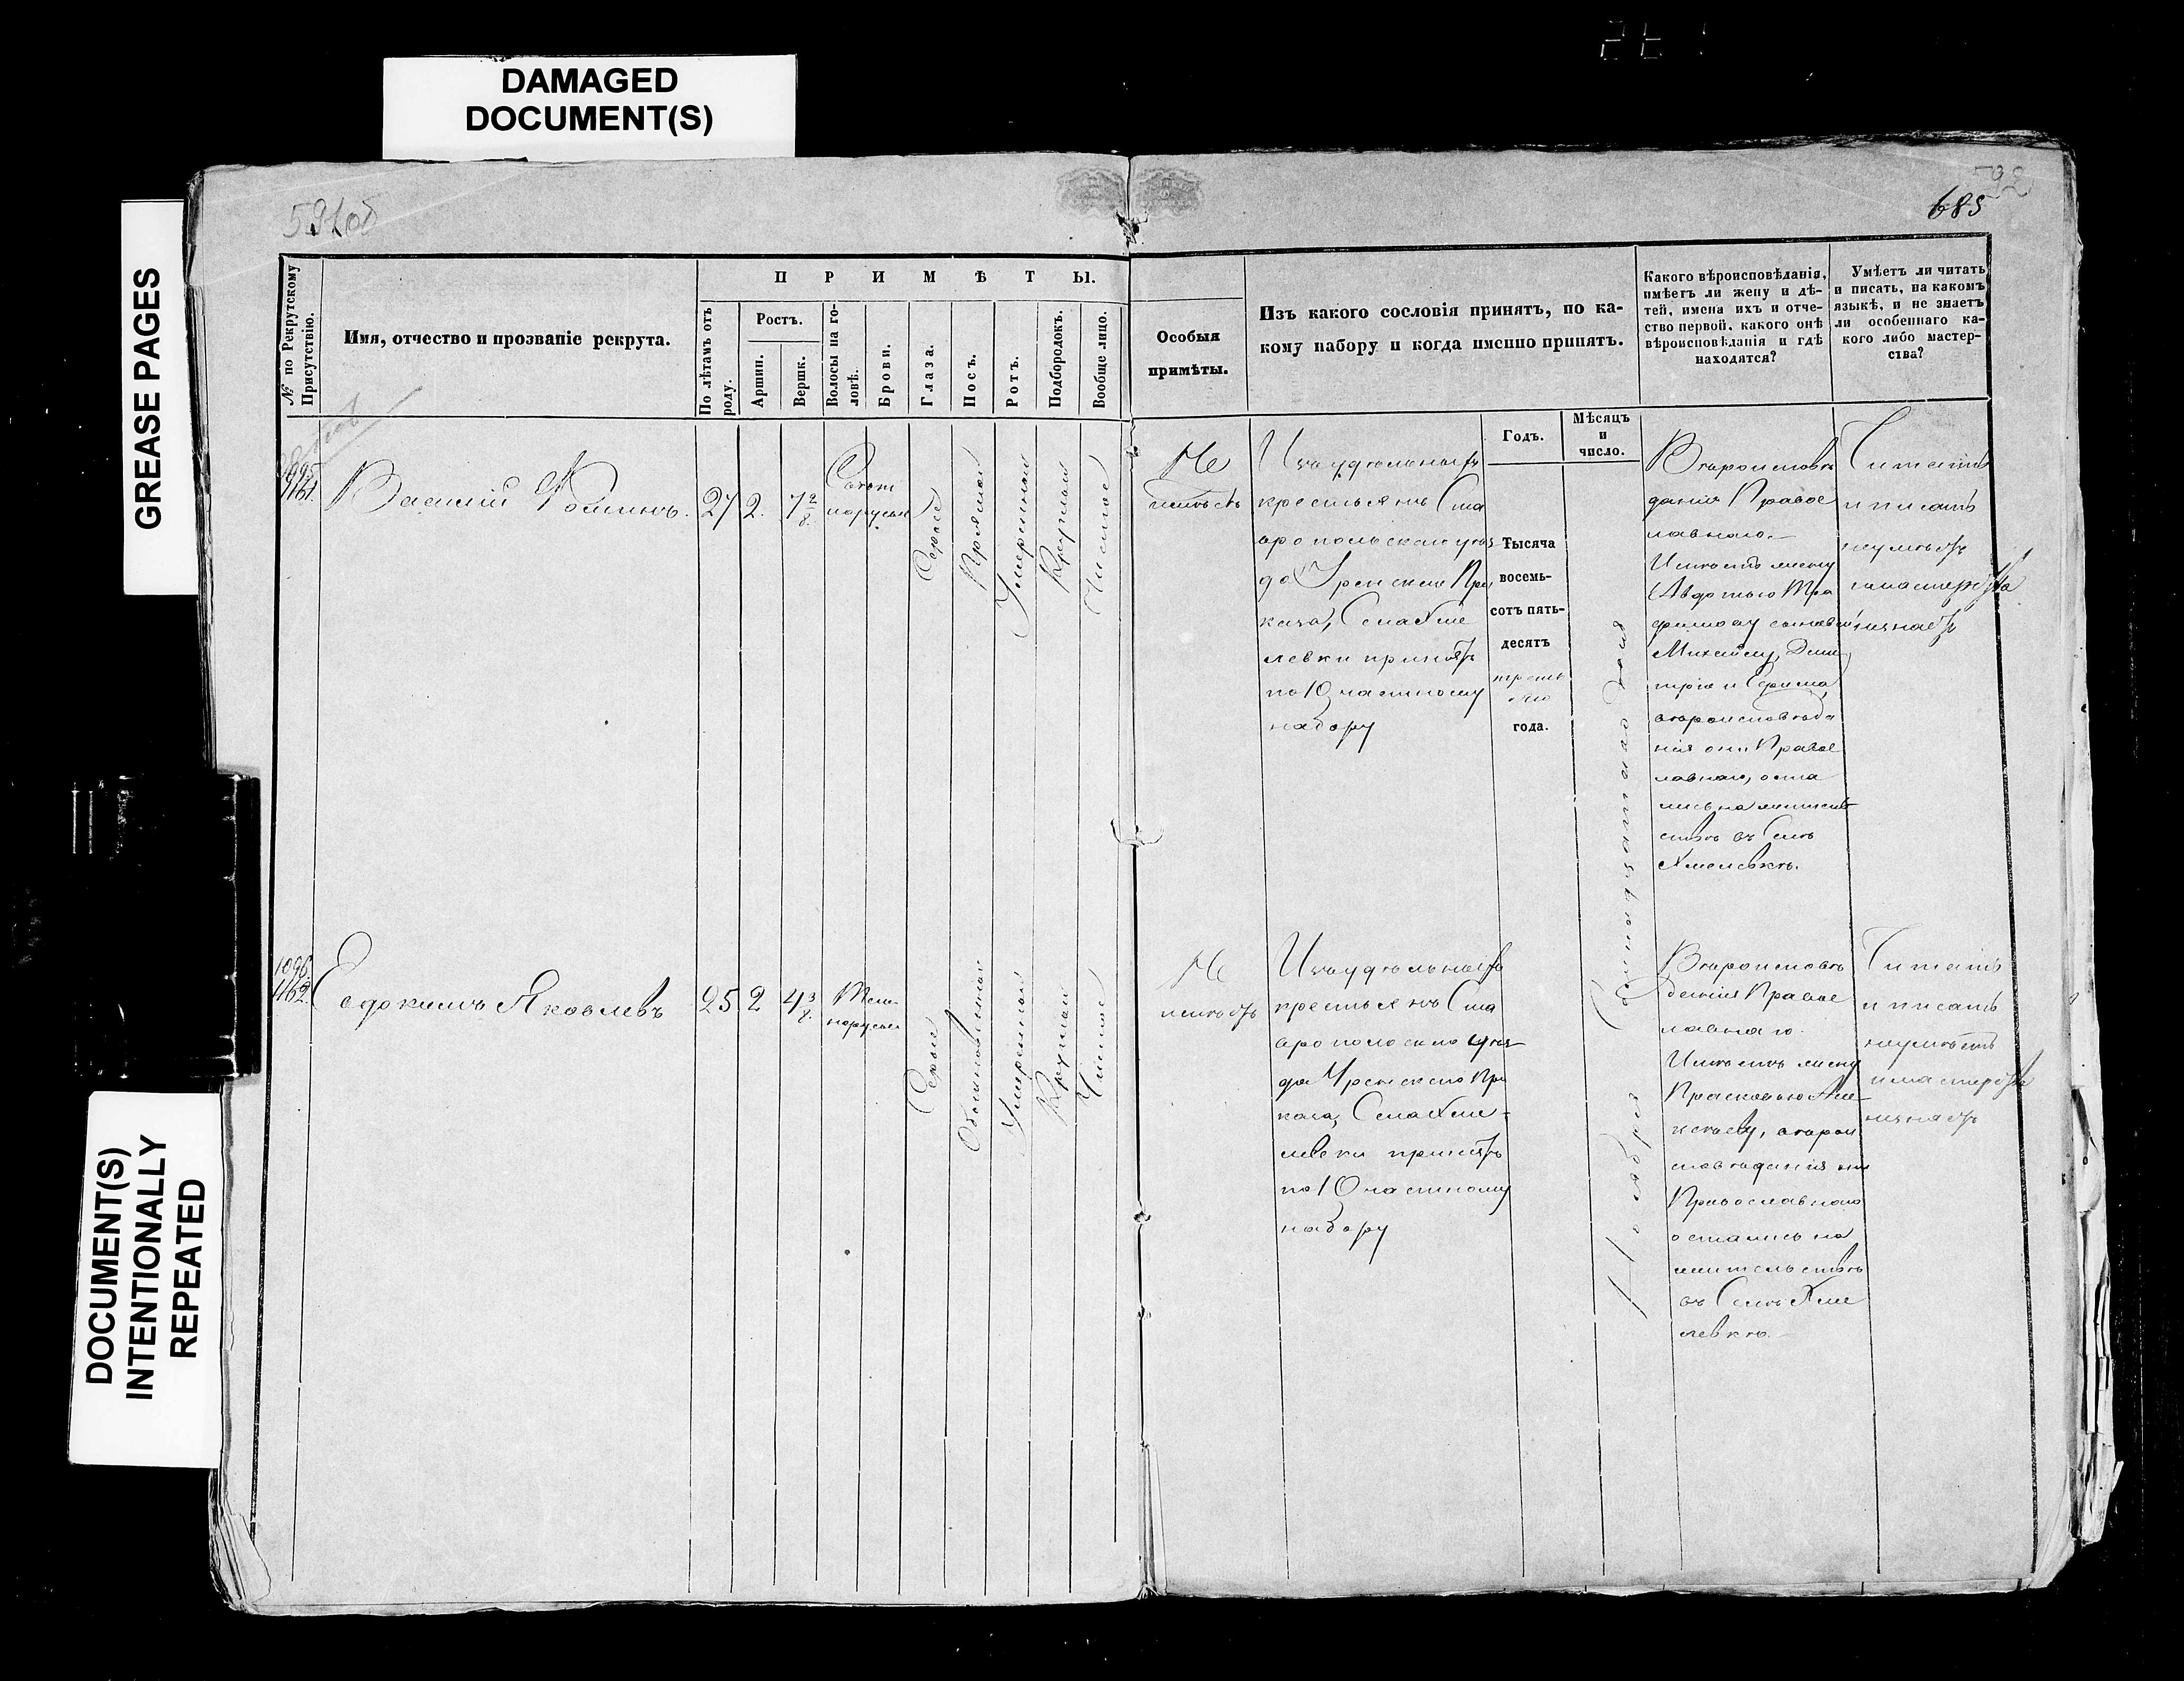 DAMAGED
DOCUMENT(S)
GREASE PAGES
DOCUMENT(S)
INTENTIONALLY
REPEATED
591об
592
685
№ по Рекрутскому
Присутствію.
Имя, отчество и прозваніе рекрута.
ПРИМѢТЫ.
По лѣтамъ отъ
роду.
Ростъ.
Аршин.
Вершк.
Волосы на го-
ловѣ.
Брови.
Глаза.
Носъ.
Ротъ.
Подбородокъ.
Вообще лицо.
Особыя
примѣты.
Изъ какого сословія принятъ, по ка-
кому набору и когда именно принятъ.
Годъ.
Мѣсяцъ
и
число.
Какого вѣроисповѣданія,
имѣетъ ли жену и дѣ-
тей, имена ихъ и отче-
ство первой, какого онѣ
вѣроисповѣданія и гдѣ
находятся?
Умѣетъ ли читать
и писать, на какомъ
языкѣ, и не знаетъ
ли особеннаго ка-
кого либо мастер-
ства?
1095
1161.
Василій Фоминъ.
27
2.
7 2/8.
Свѣт
лорусые
Сѣрые
Прямой
Умеренный
Круглый
Чистое
Не
имѣетъ
Изъ удѣльныхъ
крестьянъ Ста
вропольскаго уѣз
да Уренскаго При
каза, Села Хме
левки принятъ
по 10 частному
набору
Тысяча
восемь-
сотъ пять-
десятъ
треть
яго
года.
Ноября Семнадцатаго дня
Вѣроисповѣ
данія Правос
лавнаго.
Имѣетъ жену
Авдотью Тро
фимову сыновей
Михайлу, Дми
трія и Ефима,
вѣроисповѣда
нія они Правос
лавнаго, оста
лись на житель
ствѣ въ Селѣ
Хмелевкѣ.
Читать
и писать
неумѣетъ
имастерства
незнаетъ
1096.
1162.
Евдокимъ Яковлевъ
25
2
4 3/8.
Тем-
норусые
Сѣрые
Обыкновенный
Умеренный
Круглый
Чистое
Не
имѣетъ
Изъ удѣльныхъ
крестьянъ Ста
вропольскаго уѣз
да Уренскаго При
каза, Села Хме-
левки принятъ
по 10 частному
набору
Вѣроисповѣ
данія Правос
лавнаго.
Имѣетъ жену
Прасковью Але
ксѣеву, вѣрои
сповѣданія они
Православнаго
остались на
жительствѣ
въ Селѣ Хме
левкѣ.
Читать
и писать
неумѣетъ
имастерства
незнаетъ